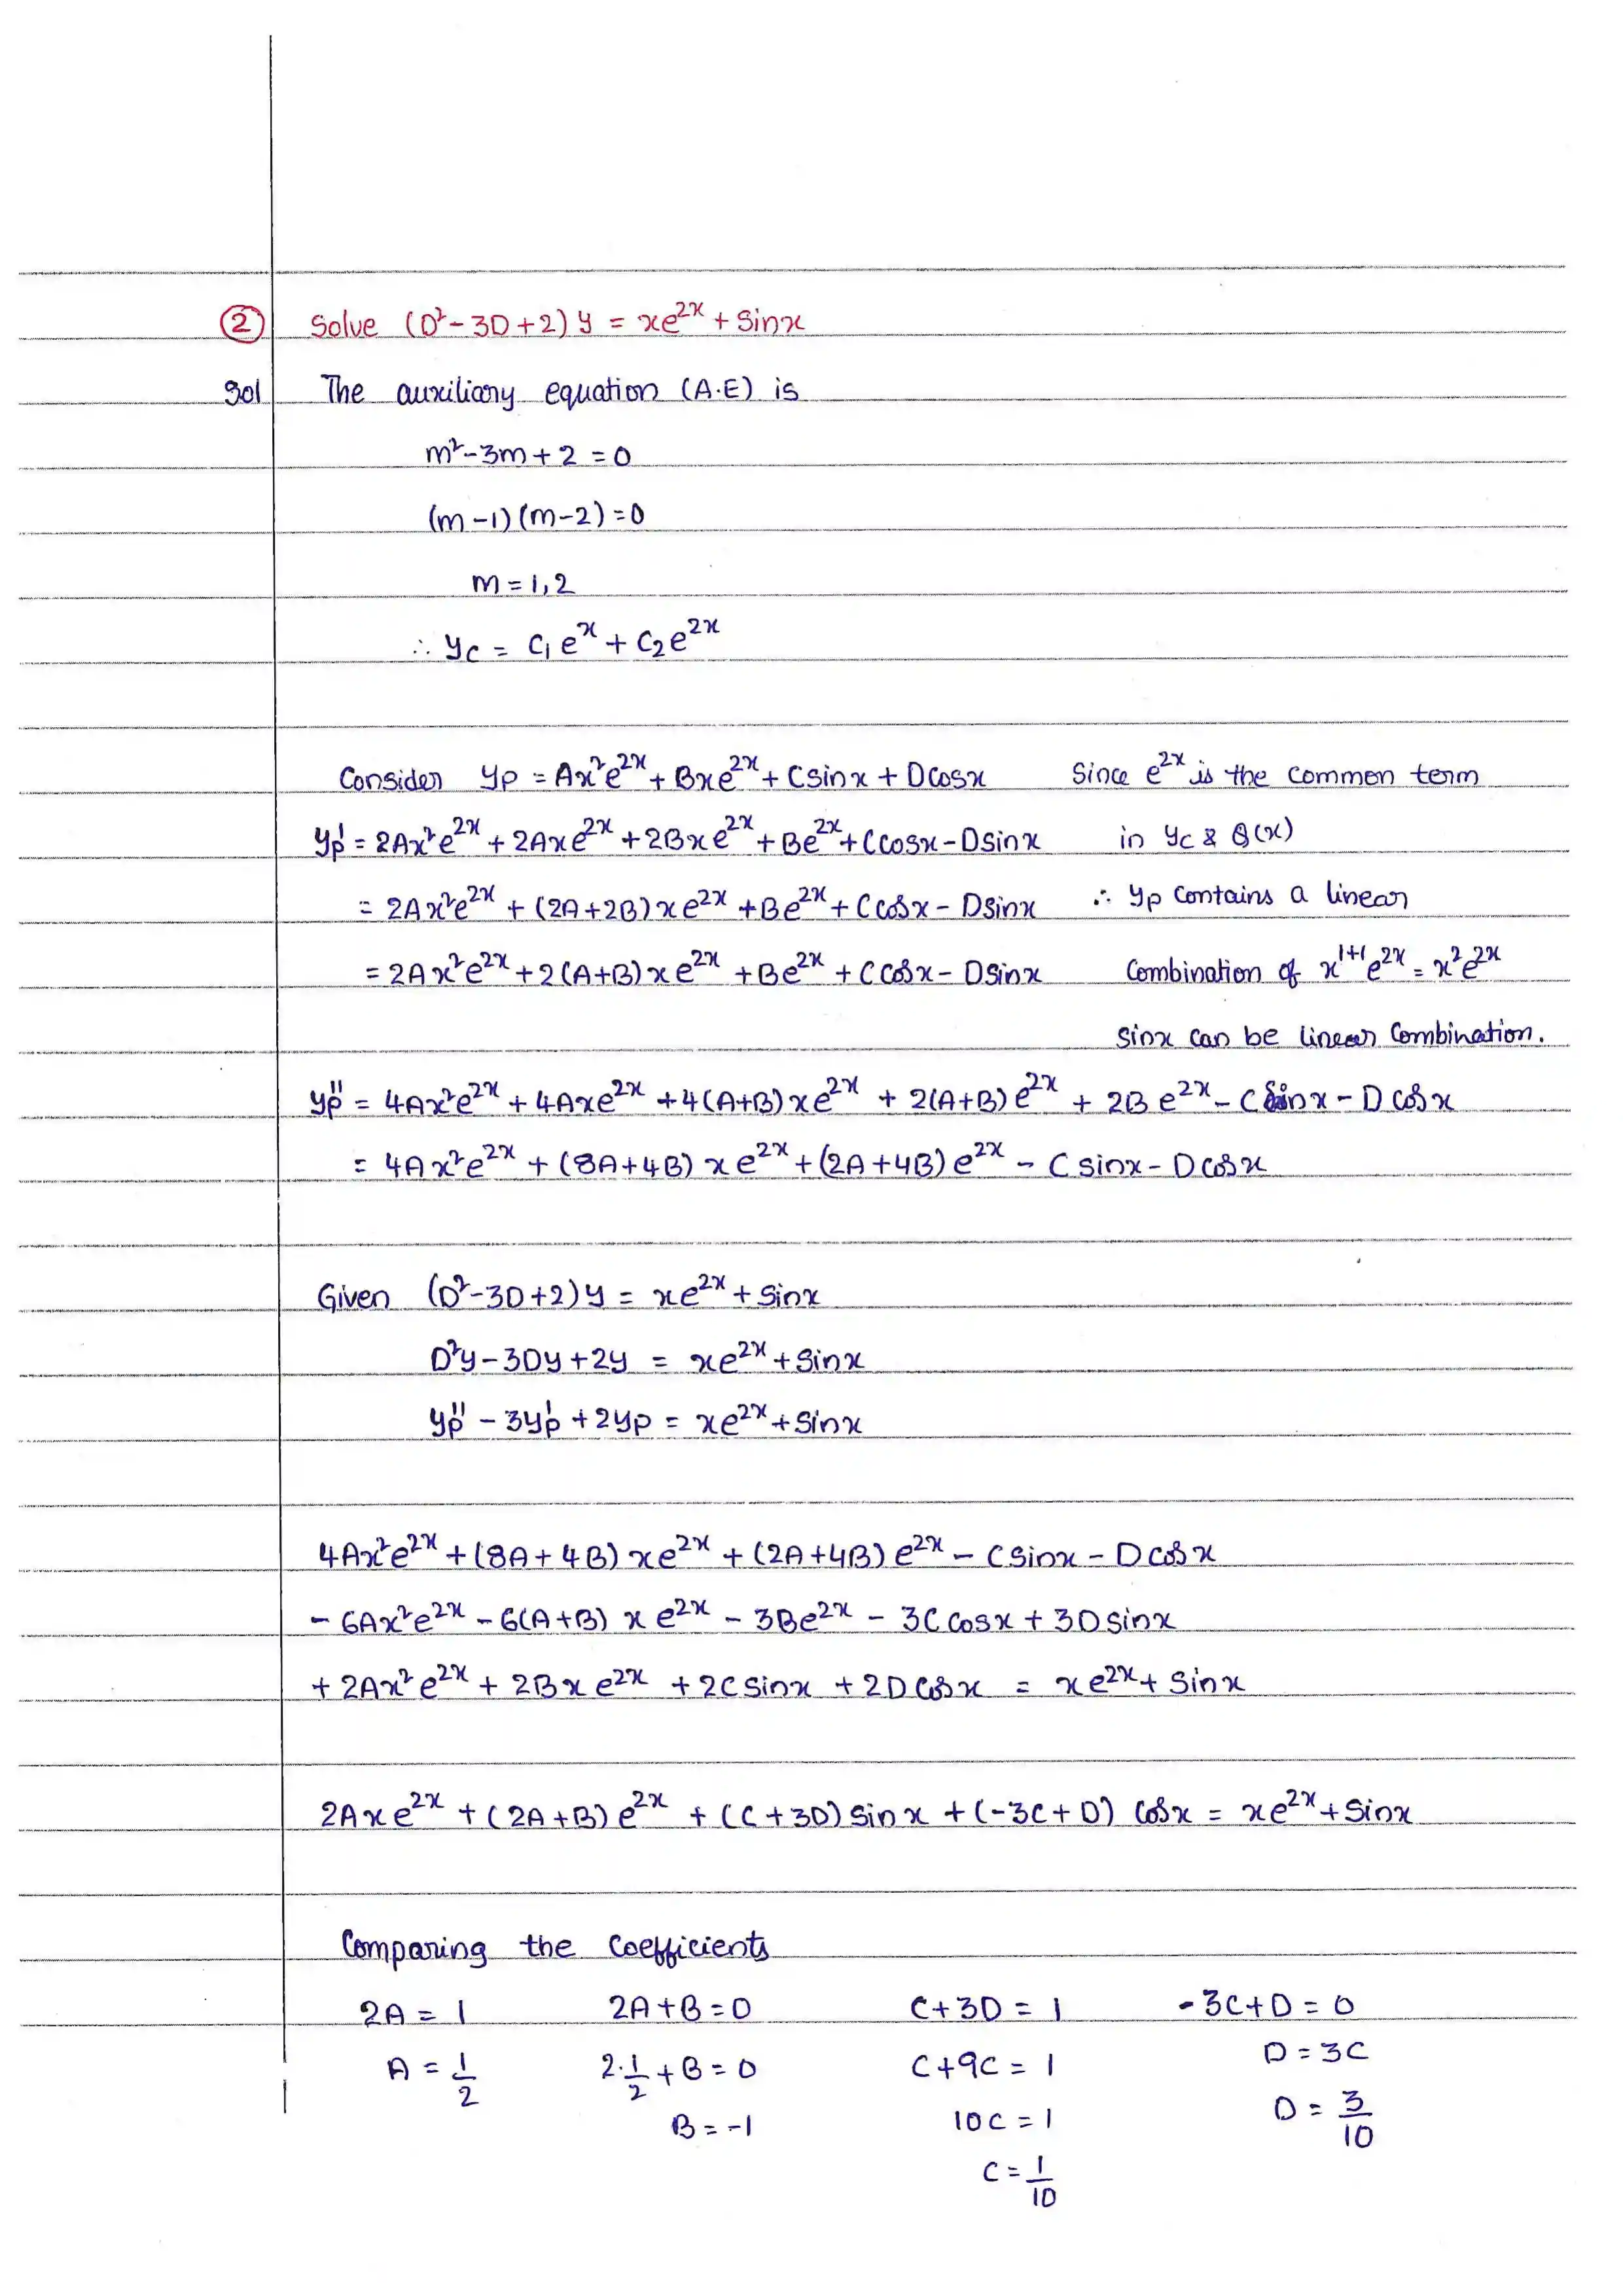 ② Solve (D²-3D+2) y = xe²ˣ + Sinx
Sol The auxiliary equation (A.E) is
m²-3m+2 = 0
(m-1)(m-2)=0
m = 1,2
∴ yc = C₁eˣ + C₂e²ˣ
Consider yp = Ax²e²ˣ + Bxe²ˣ + Csinx + Dcosx Since e²ˣ is the common term
yp' = 2Ax²e²ˣ + 2Axe²ˣ + 2Bxe²ˣ + Be²ˣ + Ccosx - Dsinx in yc & Q(x)
= 2Ax²e²ˣ + (2A+2B)xe²ˣ + Be²ˣ + Ccosx - Dsinx ∴ yp contains a linear
= 2Ax²e²ˣ + 2(A+B)xe²ˣ + Be²ˣ + Ccosx - Dsinx Combination of x¹⁺¹e²ˣ = x²e²ˣ
Sinx can be linear combination.
yp'' = 4Ax²e²ˣ + 4Axe²ˣ + 4(A+B)xe²ˣ + 2(A+B)e²ˣ + 2Be²ˣ - Csinx - Dcosx
= 4Ax²e²ˣ + (8A+4B)xe²ˣ + (2A+4B)e²ˣ - Csinx - Dcosx
Given (D²-3D+2)y = xe²ˣ + Sinx
D²y - 3Dy + 2y = xe²ˣ + Sinx
yp'' - 3yp' + 2yp = xe²ˣ + Sinx
4Ax²e²ˣ + (8A+4B)xe²ˣ + (2A+4B)e²ˣ - Csinx - Dcosx
- 6Ax²e²ˣ - 6(A+B)xe²ˣ - 3Be²ˣ - 3Ccosx + 3Dsinx
+ 2Ax²e²ˣ + 2Bxe²ˣ + 2Csinx + 2Dcosx = xe²ˣ + Sinx
2Axe²ˣ + (2A+B)e²ˣ + (C+3D)Sinx + (-3C+D)Cosx = xe²ˣ + Sinx
Comparing the coefficients
2A = 1 2A+B=0 C+3D = 1 -3C+D = 0
A = 1/2 2·1/2 + B = 0 C+9C = 1 D = 3C
B = -1 10C = 1 D = 3/10
C = 1/10